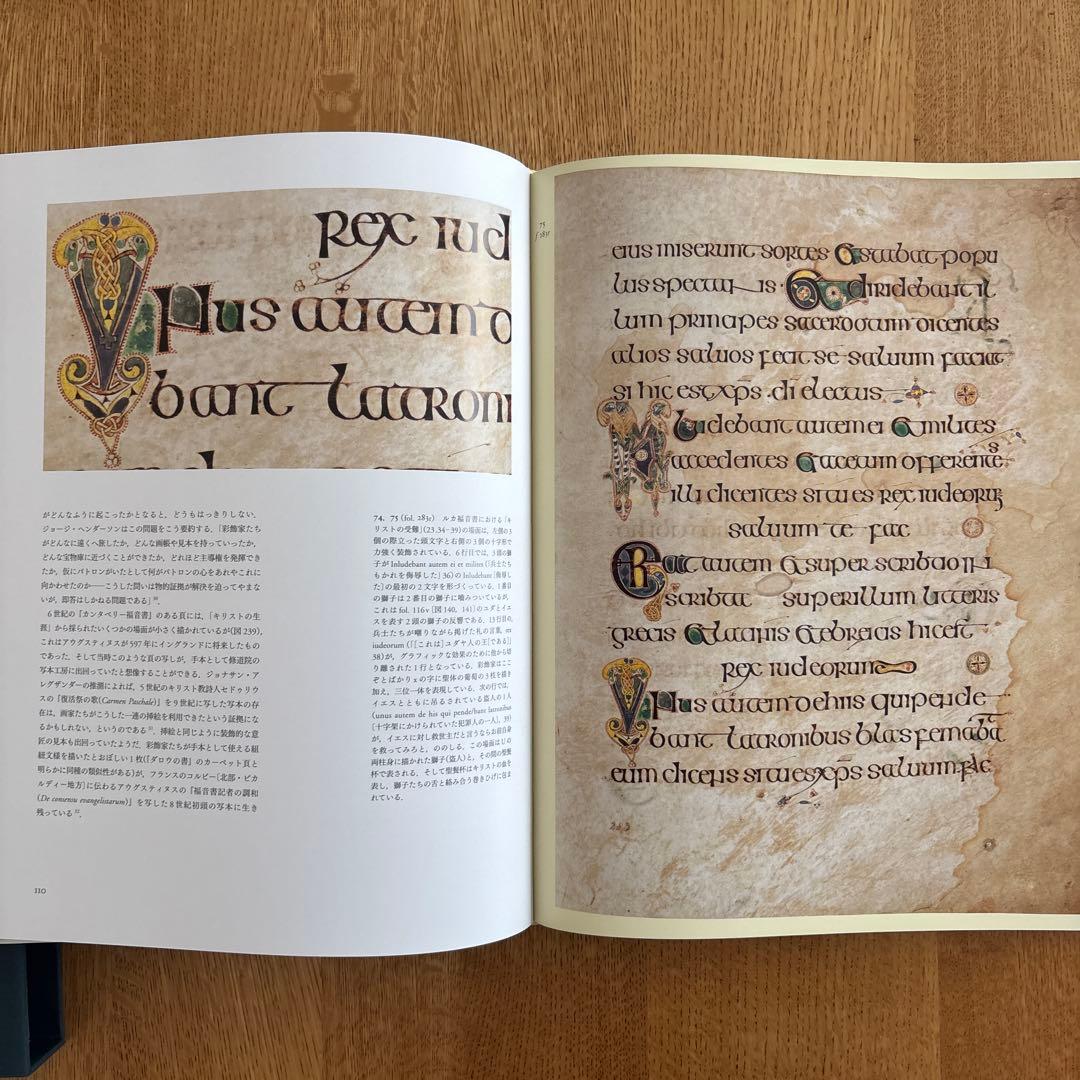 rex iud
Unus autem d
bant latroni
がどんなふうに起こったかとなると、どうもはっきりしない.
ジョージ・ヘンダーソンはこの問題をこう要約する.「彩飾家たち
がどんなに遠くへ旅したか, どんな画帳や見本を持っていったか,
どんな宝物庫に近づくことができたか, どれほど主導権を発揮でき
たか, 仮にパトロンがいたとして何がパトロンの心をあれやこれに
向かわせたのか――こうした問いは物的証拠が解決を迫ってやまな
いが, 即答はしかねる問題である」
6世紀の『カンタベリー福音書』のある頁には,「キリストの生
涯」から採られたいくつかの場面が小さく描かれているが(図239),
これはアウグスティヌスが597年にイングランドに将来したもの
であった. そして当時このような頁の写しが, 手本として修道院の
写本工房に出回っていたと想像することができる. ジョナサン・ア
レグザンダーの推測によれば, 5世紀のキリスト教詩人セドゥリウ
スの『復活祭の歌(Carmen Paschale)』を9世紀に写した写本の存
在は, 画家たちがこうした一連の挿絵を利用できたという証拠にな
るかもしれない, というのである31. 挿絵と同じように装飾的な意
匠の見本も出回っていたようだ. 彩飾家たちが手本として使える組
紐文様を描いたとおぼしい1枚(『ダロウの書』のカーペット頁と
明らかに同種の類似性がある)が, フランスのコルビー[北部・ピカ
ルディー地方]に伝わるアウグスティヌスの『福音書記者の調和
(De consensu evangelistarum)』を写した8世紀初頭の写本に生き
残っている32.
110
74, 75 (fol. 283r) ルカ福音書における「キ
リストの受難」(23.34–39)の場面は, 左側の3
個の際立った頭文字と右側の3個の十字形で
力強く装飾されている. 6行目では, 3頭の獅
子が Inludebant autem ei et milites (「兵士たち
もかれを侮辱した」36)の Inludebant [侮辱し
た]の最初の2文字を形づくっている. 1番目
の獅子は2番目の獅子に噛みついているが,
これは fol. 116v [図140, 141]のユダとイエ
スを表す2頭の獅子の反響である. 13行目の,
兵士たちが嘲りながら掲げた札の言葉, rex
iudeorum (「[これは]ユダヤ人の王[である]」
38)が, グラフィックな効果のために他から切
り離された1行となっている. 彩飾家はここ
ぞとばかり x の字に聖体の葡萄の3枝を描き
加え, 三位一体を表現している. 次の行では,
イエスとともに吊るされている盗人の1人
(unus autem de his qui pende/bant latronibus
[十字架にかけられていた犯罪人の一人], 39)
が, イエスに対し救世主だと言うならお前自身
を救ってみろと, ののしる. この場面は U の
両柱身に描かれた獅子(盗人)と, その間の聖餐
杯で表される. そして聖餐杯はキリストの血を
表し, 獅子たちの舌と絡み合う巻きひげに包ま
れている.
75
f. 283r
eius miserunt sortes Et stabat popu
lus spectans Et diridebant il
lum principes sacerdotum dicentes
alios saluos fecit se saluum faciat
si hic est xps di electus
Inludebant autem ei Et milites
accedentes Et acetum offerentes
illi dicentes si tu es rex iudeorum
saluum te fac
Erat autem Et super scribtio in
scribta super illum litteris
grecis Et latinis Et ebreicis hic est
rex iudeorum
Unus autem de his qui pende
bant latronibus blasfemaba
eum dicens si tu es xps saluum fac
283